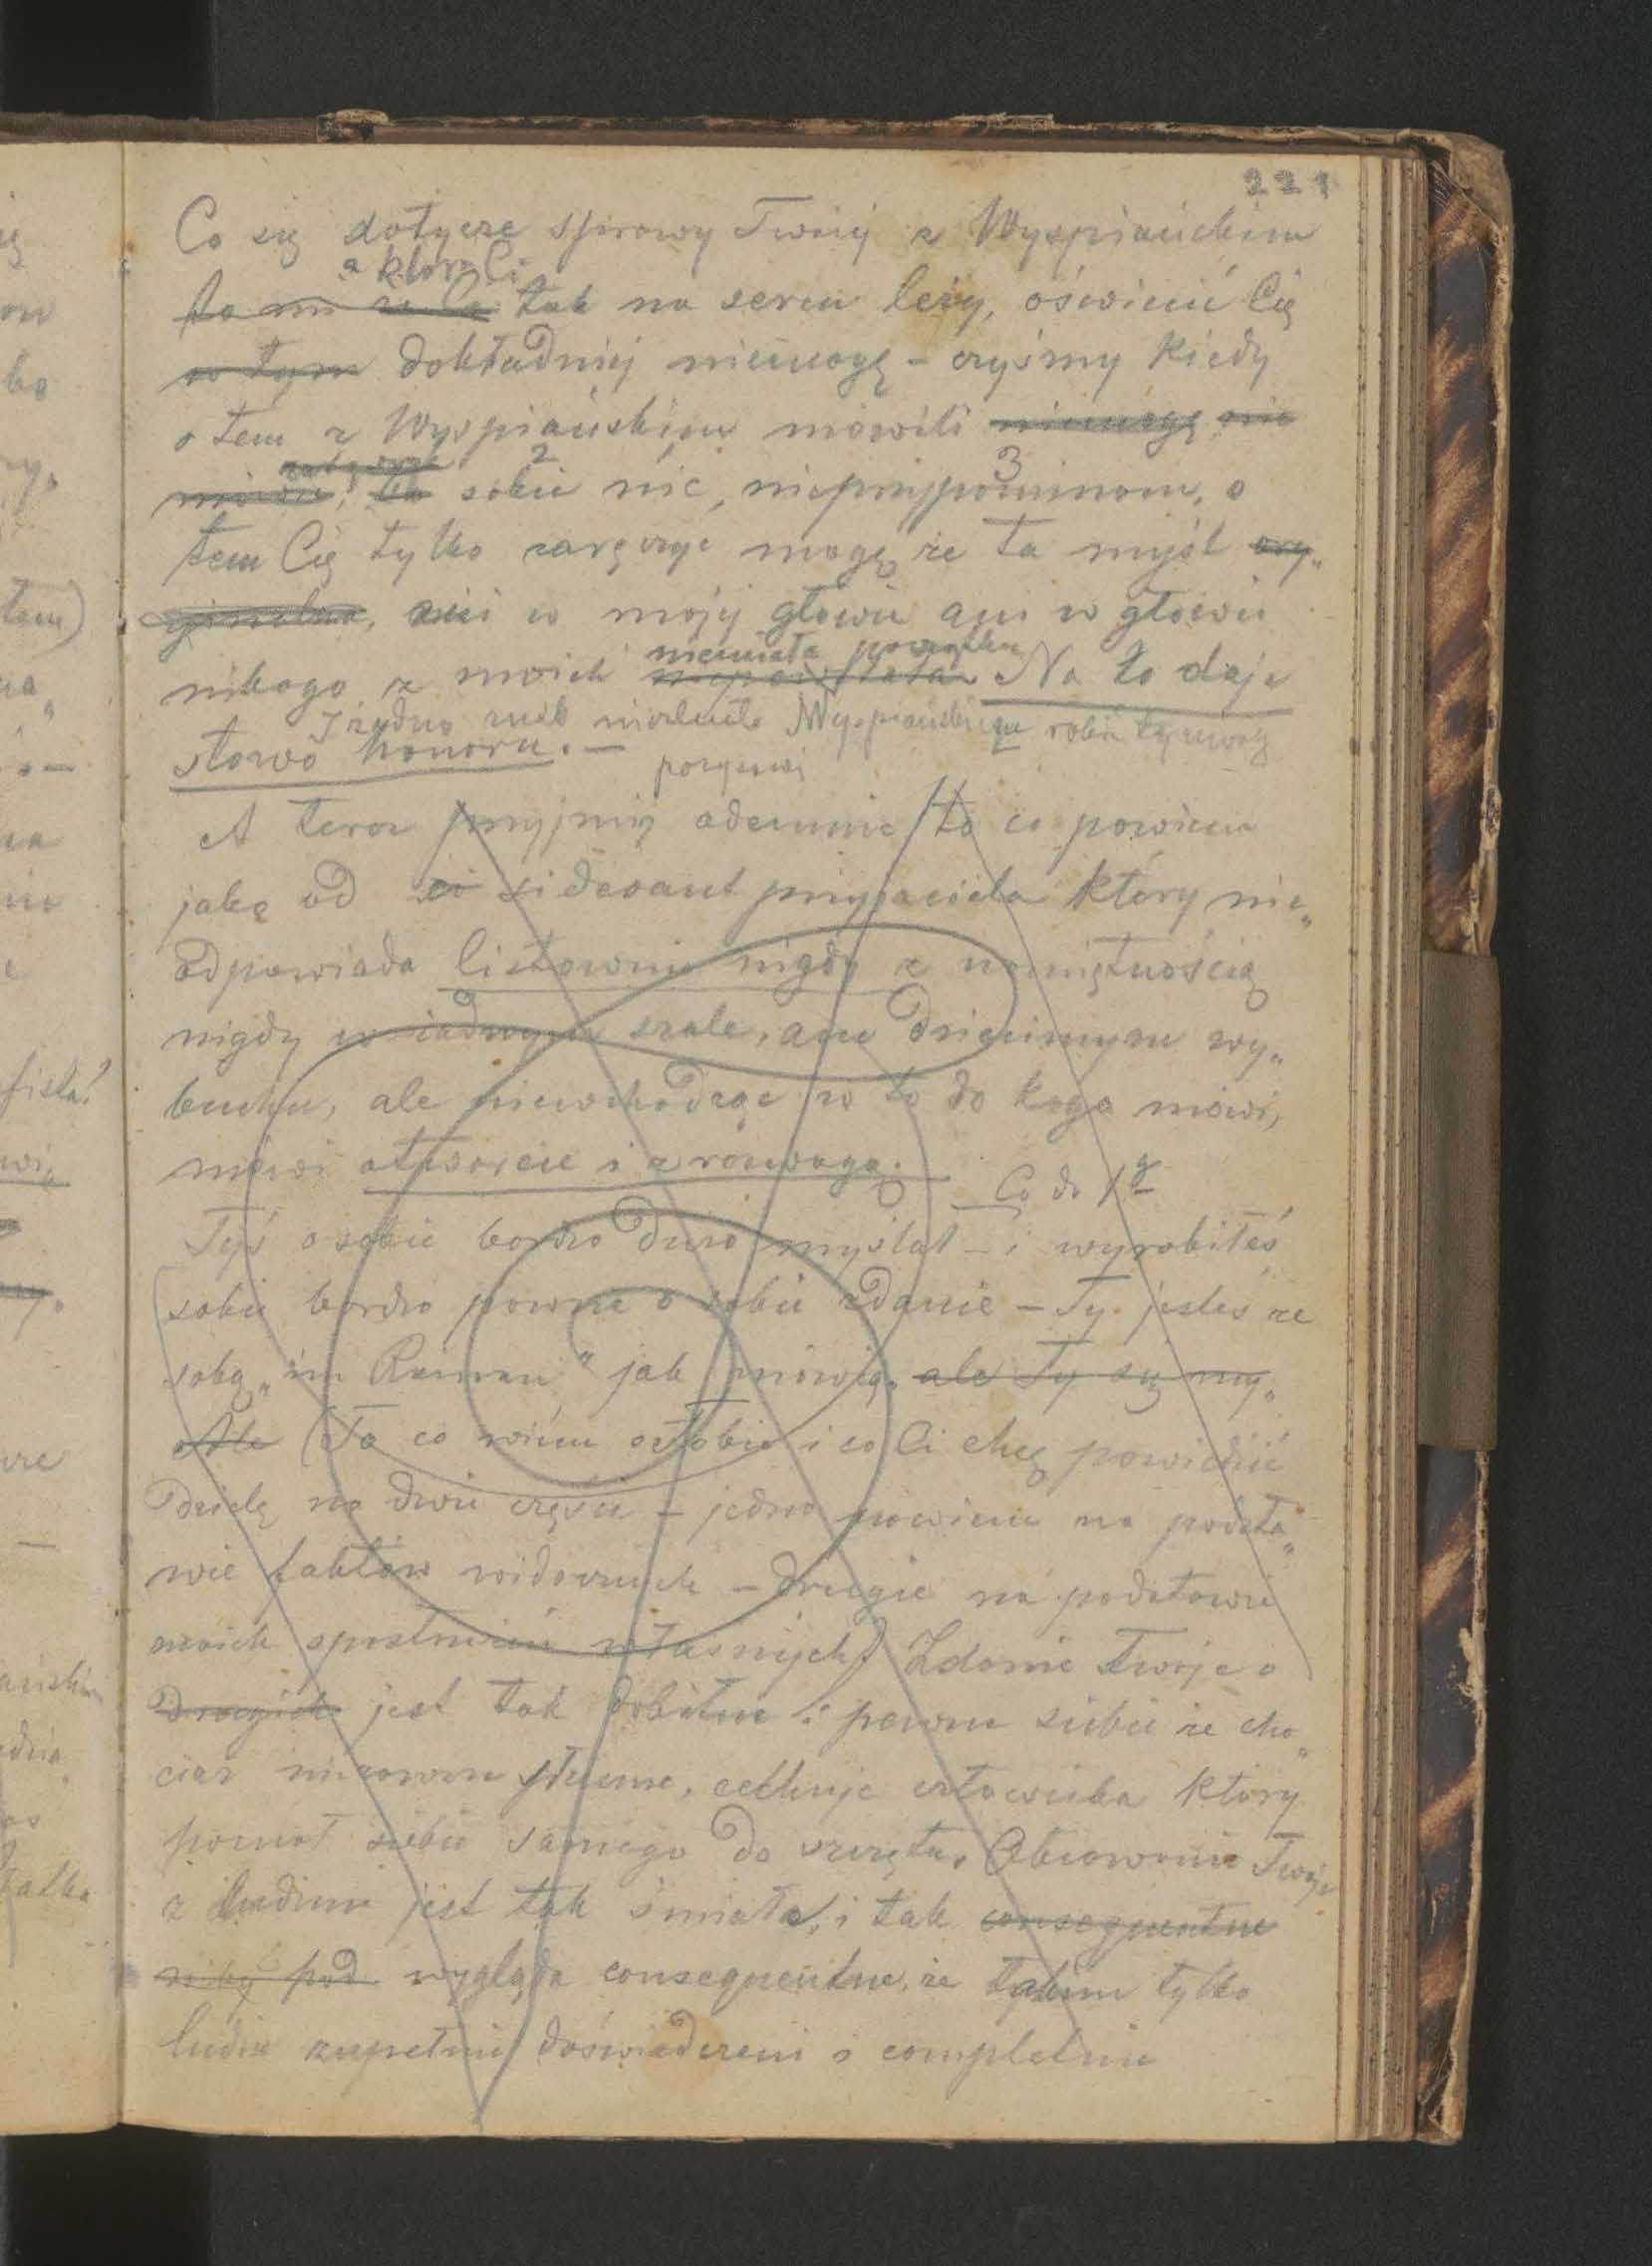 221
Co się dotycze sprawy Twojéj z Wyspiańskim
a która Ci
to mi tak na sercu leży, oświecić Cię
o tym dokładniéj niemogę – czyśmy kiedy
o tem z Wyspiańskim mówili niemogę
2 3
sobie nic, nieprzypominam, o
tem Cię tylko zaręczyć mogę że ta myśl ory„
ginalna, ani w mojéj głowie ani w głowie
niemiała początku
nikogo z moich niepowstała Na to daję
I żadno Wyspiańskiego
słowo honoru. –
A teraz przyjmij odemnie to co powiem
jako od ci-devant przyjaciela który nie„
odpowiada listownie nigdy z namiętnością
nigdy w żadnym szale, ani dziecinnym wy„
buchu, ale niewchodząc w to do kogo mówi,
mówi otwarcie i z rozwagą.
Co do 1g
Tyś o sobie bardzo dużo myślał – i wyrobiłeś
sobie bardzo pewne o sobie zdanie – Ty jesteś ze
sobą „im Reinen" jak mówią, ale Ty się my„
Ale (To co wiem o Tobie i co Ci chcę powiedzieć
dzielę na dwie części – jedno powiem na podsta„
wie faktów widocznych – drugie na podstawie
moich spostrzeżeń własnych) Zdanie Twoje o
drugich jest tak dobitne i pewne siebie że cho„
ciaż nie zawsze słuszne, cechuje człowieka który
poznał siebie samego do szczętu. Obcowanie Twoje
z ludźmi jest tak śmiałe, i tak consequentne
niby pod wygląda consequentne, że takim tylko
ludzie zupełnie doświadczeni i completnie